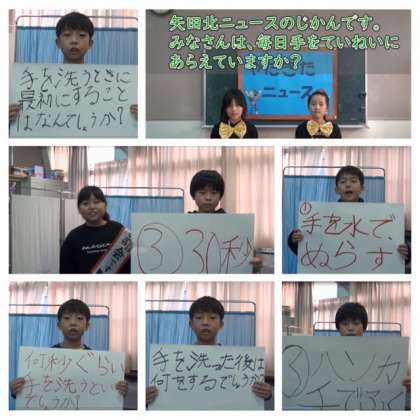 手を洗うときに
最初にすること
はなんでしょうか？
矢田北ニュースのじかんです。
みなさんは、毎日手をていねいに
あらえていますか？
ニュース
③30秒
①
手を水で、
ぬらす
何秒ぐらい
手を洗うといい
でしょうか？
手を洗った後は
何をするでしょうか？
③ハンカ
チで